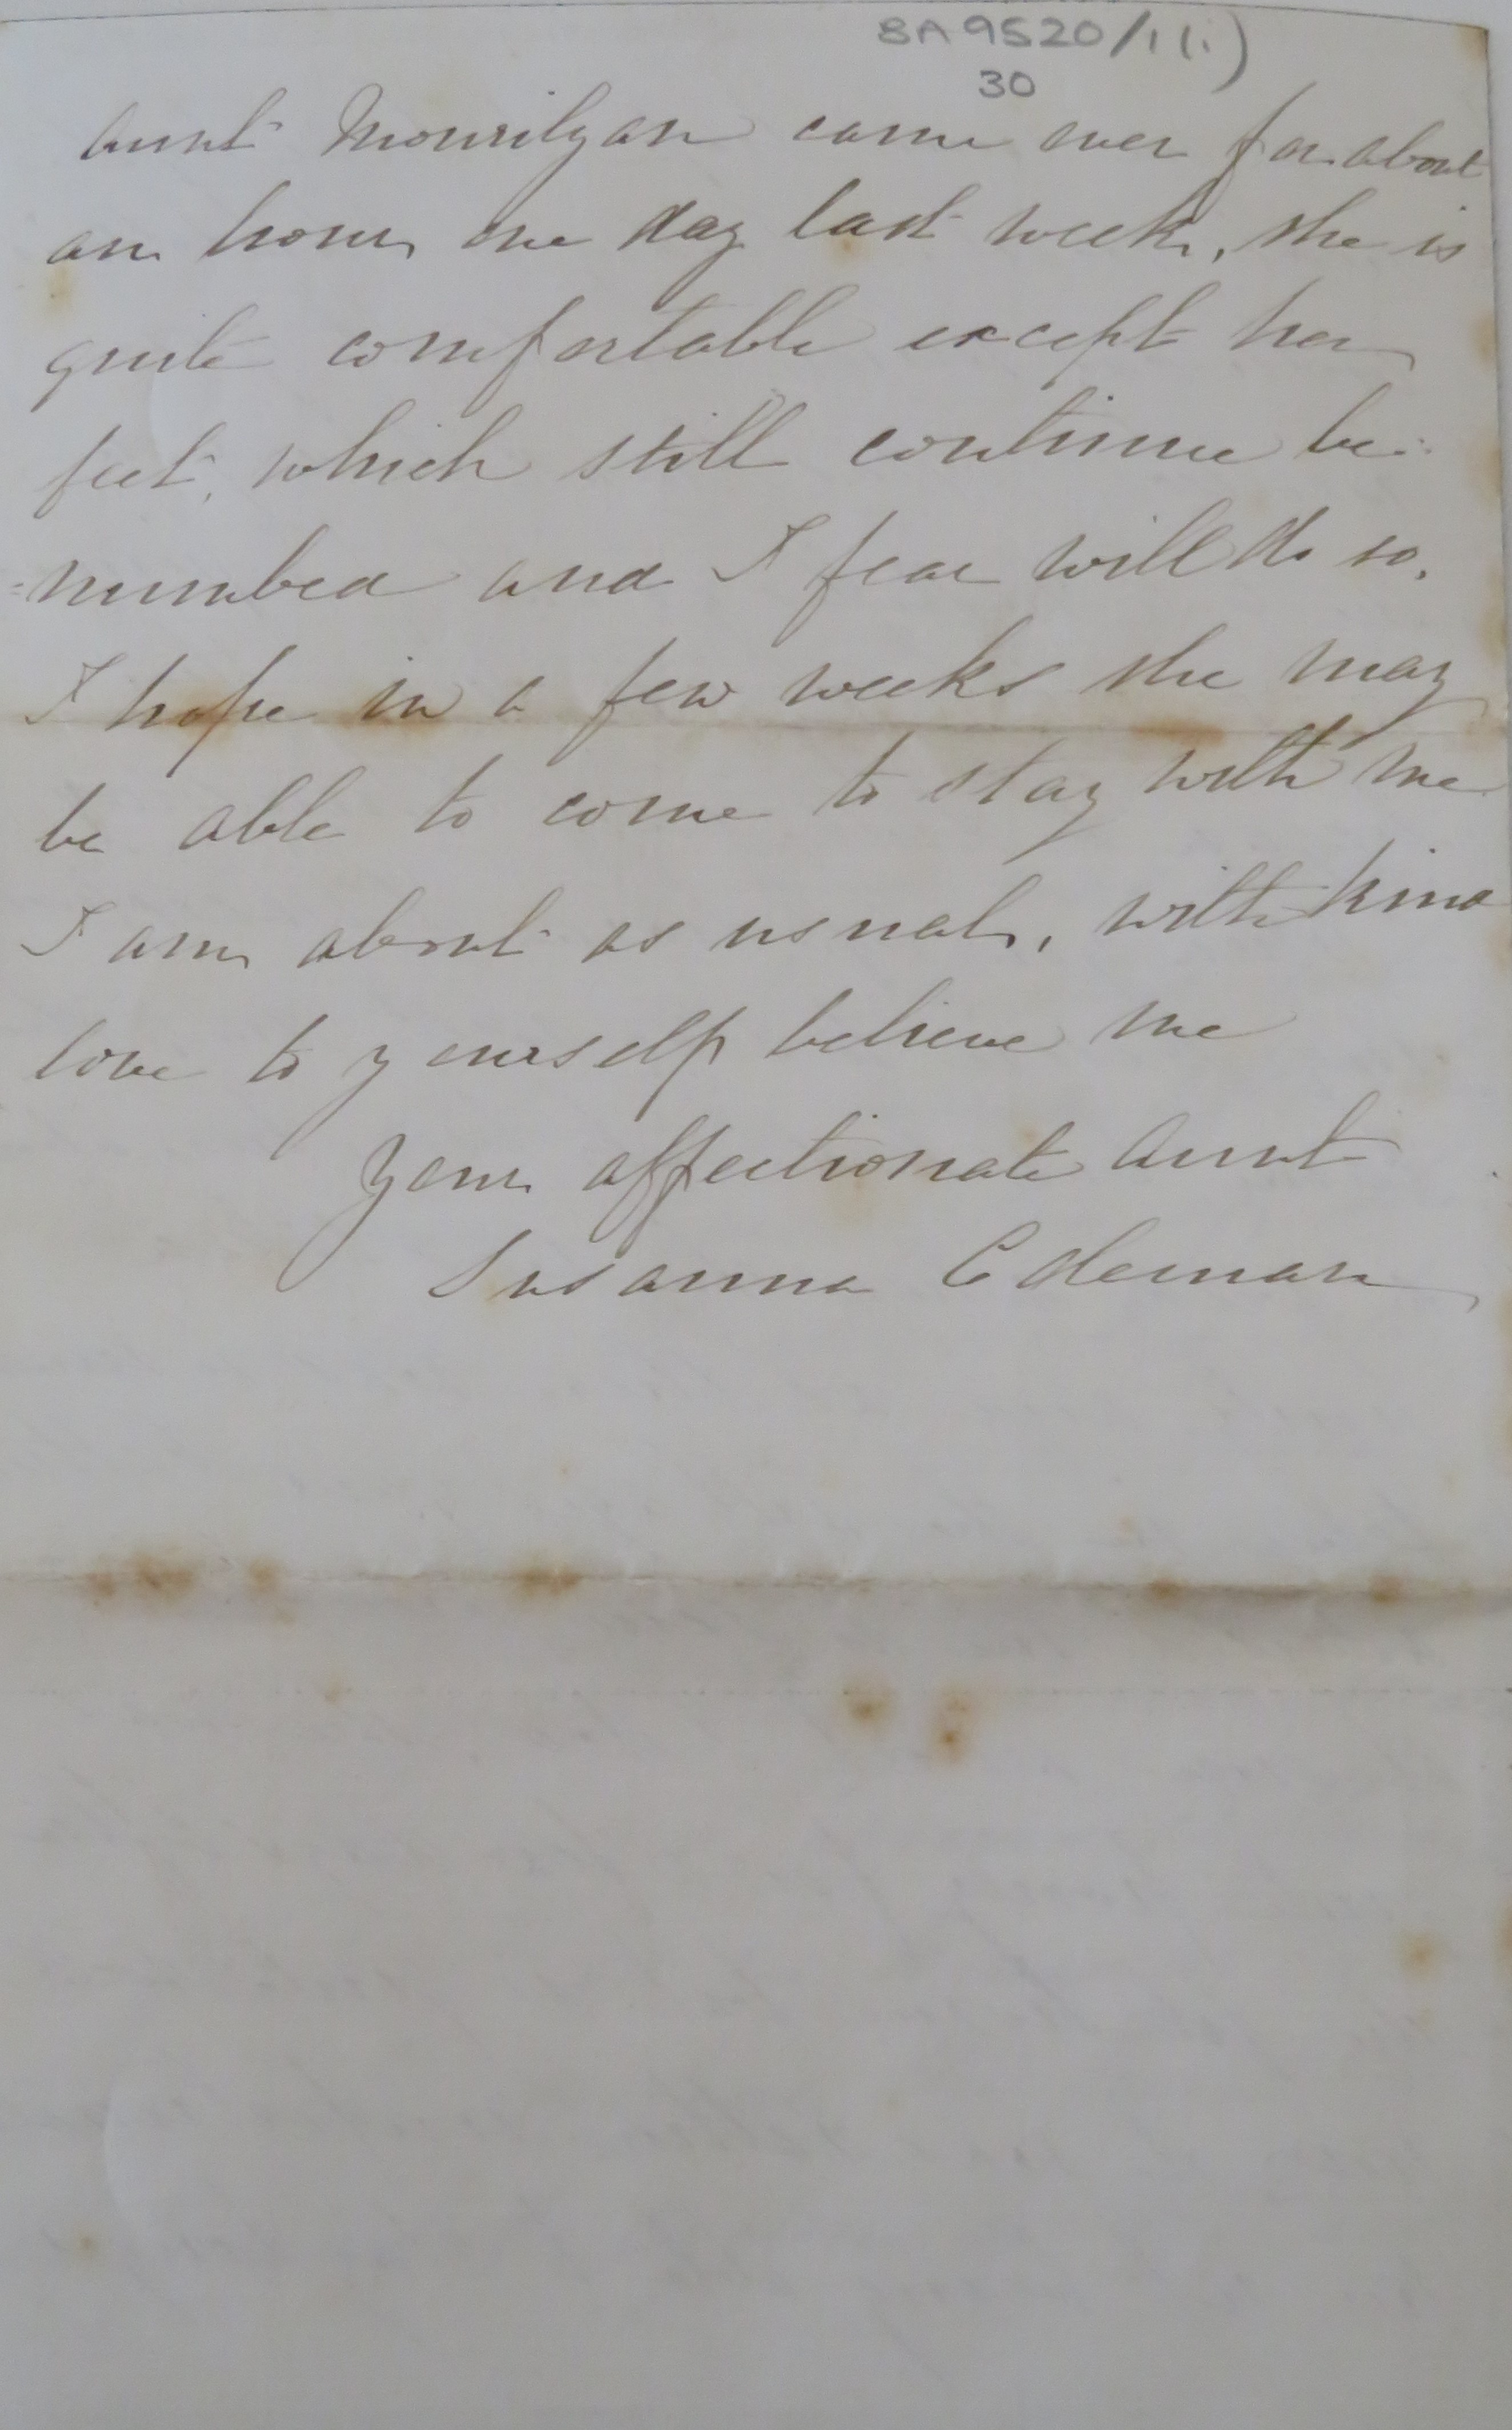 8A9520/1(i)
30
Aunt Mourilyan came over for about
an hour one day last week, she is
quite comfortable except her
feet, which still continue be=
=numbed and I fear will do so.
I hope in a few weeks she may
be able to come to stay with me
I am about as usual, with kind
love to yourself believe me
Your affectionate Aunt
Susanna Coleman